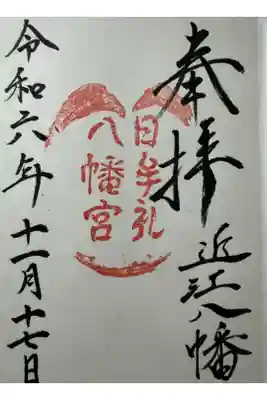 奉拝
近江八幡
日牟礼
八幡宮
令和六年 十一月十七日